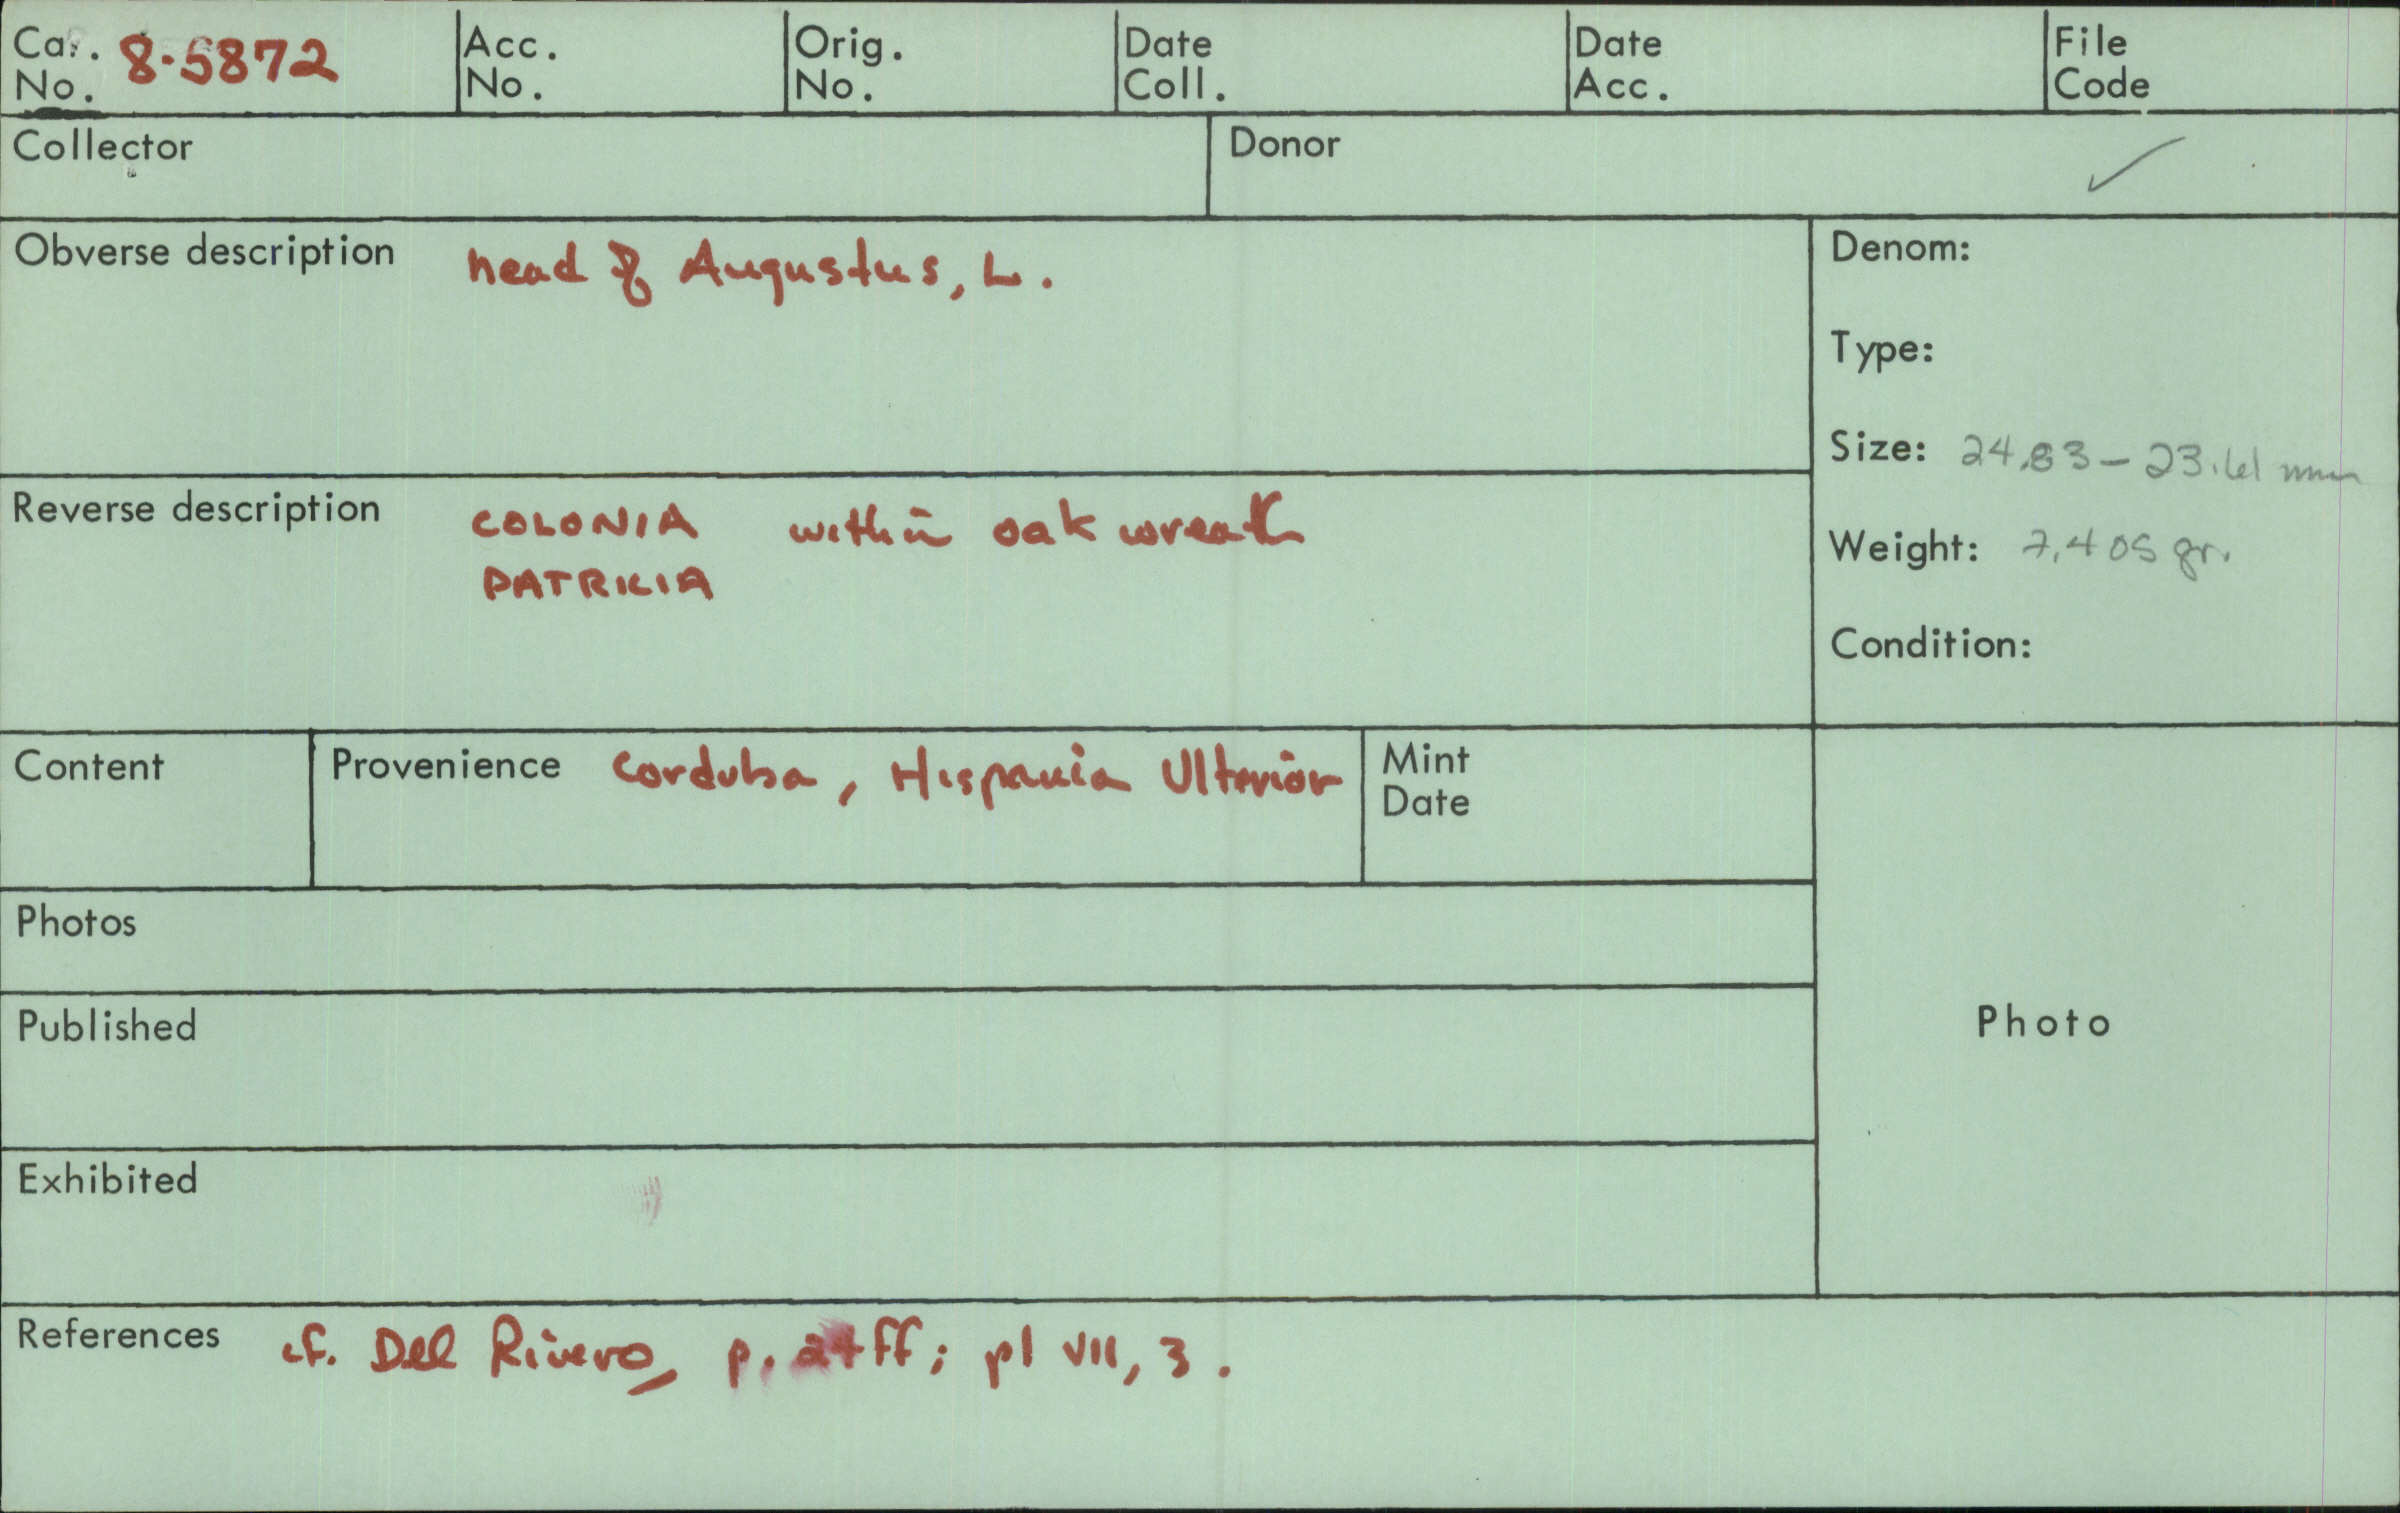 Cat. No. 8-5872
Acc. No.
Orig. No.
Date Coll.
Date Acc.
File Code
Collector
Donor ✓
Obverse description head of Augustus, L.
Denom:
Type:
Size: 24.83 – 23.61 mm
Weight: 7.405 gr.
Condition:
Reverse description COLONIA within oak wreath
PATRICIA
Content
Provenience Corduba, Hispania Ulterior
Mint Date
Photos
Published
Photo
Exhibited
References cf. Del Rivero, p. 24ff; pl VII, 3.